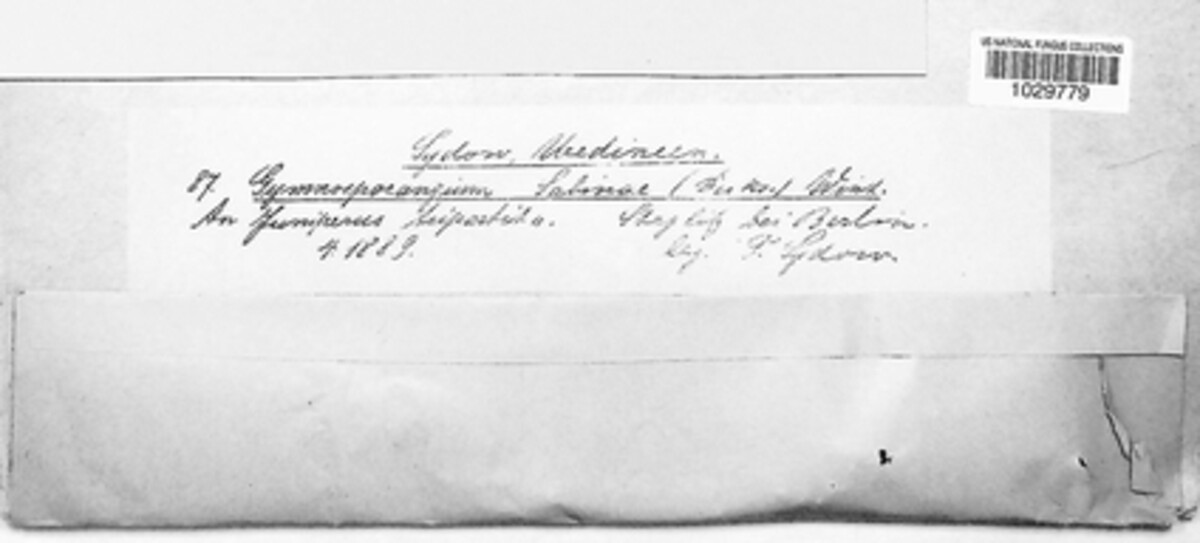 US NATIONAL FUNGUS COLLECTIONS
1029779
Sydow, Uredineen.
87. Gymnosporangium Sabinae (Dicks.) Wint.
An Juniperus tripartita. Steglitz bei Berlin.
4. 1889. leg. P. Sydow.